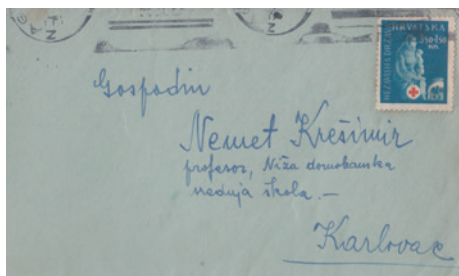 HRVATSKA
NEZAVISNA DRŽAVA
Gospodin
Nemet Krešimir
profesor, Niža domobranska
srednja škola.—
Karlovac